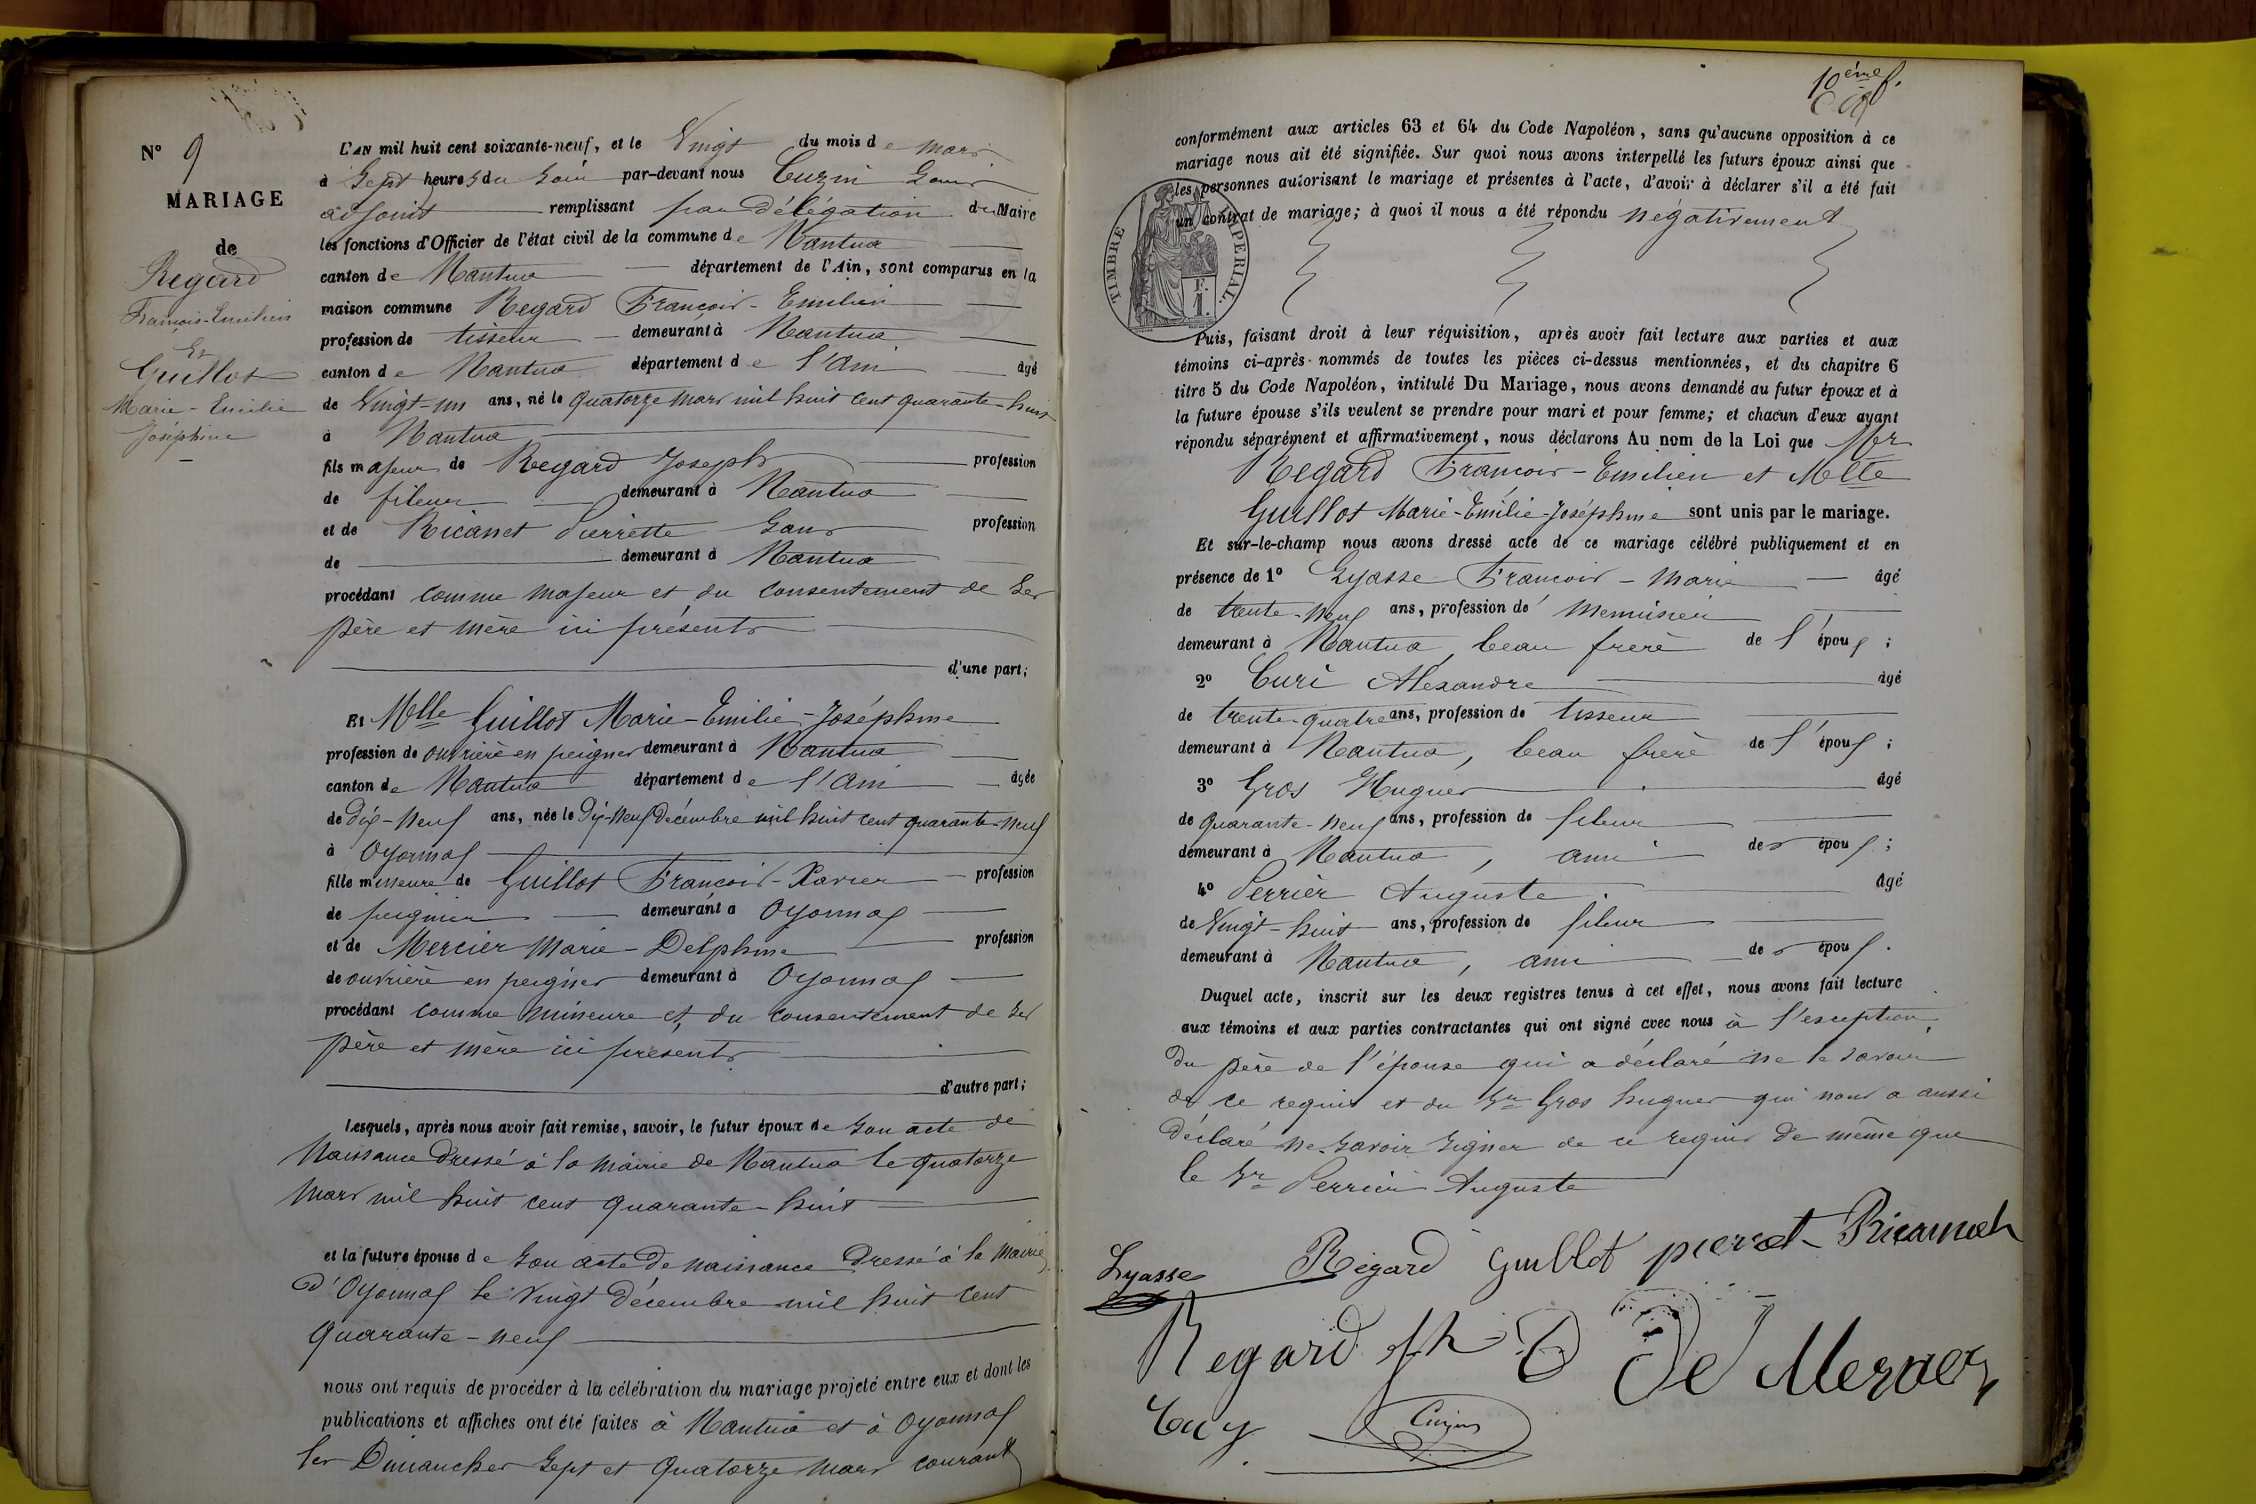 N° 9
MARIAGE
de
Regard
François-Emilien
Et
Guillot
Marie-Emilie
Joséphine
L'AN mil huit cent soixante-neuf, et le Vingt du mois de mars
à Sept heures du Soir par-devant nous Cuzin Louis
adjoint remplissant par délégation du Maire
les fonctions d'Officier de l'état civil de la commune de Nantua
canton de Nantua département de l'Ain, sont comparus en la
maison commune Regard François-Emilien
profession de tisseur demeurant à Nantua
canton de Nantua département de l'Ain âgé
de Vingt-un ans, né le quatorze mars mil huit cent quarante-huit
à Nantua
fils majeur de Regard Joseph profession
de fileur demeurant à Nantua
et de Ricanet Pierrette Sans profession
de demeurant à Nantua
procédant comme majeur et du consentement de Ses
père et mère ici présents
d'une part;
Et Melle Guillot Marie-Emilie-Joséphine
profession de ouvrière en peignes demeurant à Nantua
canton de Nantua département de l'Ain âgée
de dix-neuf ans, née le Dix-neuf décembre mil huit cent quarante-neuf
à Oyonnax
fille mineure de Guillot François-Xavier profession
de peignier demeurant à Oyonnax
et de Mercier Marie-Delphine profession
de ouvrière en peignes demeurant à Oyonnax
procédant comme mineure et du consentement de ses
père et mère ici présents
d'autre part;
Lesquels, après nous avoir fait remise, savoir, le futur époux de Son acte de
Naissance dressé à la mairie de Nantua le quatorze
mars mil huit cent quarante-huit
et la future épouse de Son acte de naissance dressé à la mairie
d'Oyonnax le Vingt décembre mil huit cent
quarante-neuf
nous ont requis de procéder à la célébration du mariage projeté entre eux et dont les
publications et affiches ont été faites à Nantua et à Oyonnax
les Dimanches Sept et quatorze mars courant
10ème f.
conformément aux articles 63 et 64 du Code Napoléon, sans qu'aucune opposition à ce
mariage nous ait été signifiée. Sur quoi nous avons interpellé les futurs époux ainsi que
les personnes autorisant le mariage et présentes à l'acte, d'avoir à déclarer s'il a été fait
un contrat de mariage; à quoi il nous a été répondu négativement
TIMBRE IMPERIAL.
F.
1.
Puis, faisant droit à leur réquisition, après avoir fait lecture aux parties et aux
témoins ci-après nommés de toutes les pièces ci-dessus mentionnées, et du chapitre 6
titre 5 du Code Napoléon, intitulé Du Mariage, nous avons demandé au futur époux et à
la future épouse s'ils veulent se prendre pour mari et pour femme; et chacun d'eux ayant
répondu séparément et affirmativement, nous déclarons Au nom de la Loi que Mr
Regard François-Emilien et Melle
Guillot Marie-Emilie-Joséphine sont unis par le mariage.
Et sur-le-champ nous avons dressé acte de ce mariage célébré publiquement et en
présence de 1° Lyasse François-Marie âgé
de trente-neuf ans, profession de menuisier
demeurant à Nantua, beau frère de l'époux;
2° Curi Alexandre âgé
de trente-quatre ans, profession de tisseur
demeurant à Nantua, beau frère de l'époux;
3° Gros Hugues âgé
de quarante-neuf ans, profession de fileur
demeurant à Nantua, ami des époux;
4° Perrier Auguste âgé
de Vingt-huit ans, profession de fileur
demeurant à Nantua, ami des époux.
Duquel acte, inscrit sur les deux registres tenus à cet effet, nous avons fait lecture
aux témoins et aux parties contractantes qui ont signé avec nous à l'exception
du père de l'épouse qui a déclaré ne le savoir
de ce requis et du Sr Gros hugues qui nous a aussi
déclaré ne savoir signer de ce requis de même que
le Sr Perrier Auguste
Lyasse Regard Guillot pierret-Ricarnet
Regard fh De Mercier
Cuzin